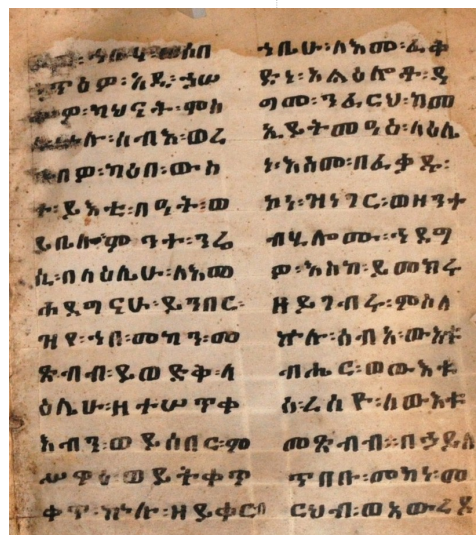 ም፡ካህናት፡ምስ
ኵሉ፡ሰብእ፡ወረ
በዎ፡ካዕበ፡ውስ
ተ፡ይእቲ፡በዓት፡ወ
ይቤሎሙ፡ንተ፡ንሬ
ሲ፡በላዕሌሁ፡ለእመ
ሐደግናሁ፡ይነብር፡
ዝየ፡ኀበ፡መካን፡መ
ጽብብ፡ይወድቅ፡ላ
ዕሌሁ፡ዘተሠጥቀ
እብን፡ወይሰበር፡ም
ሥዋዕ፡ወይትቀጥ
ቀጥ፡ኵሉ፡ዘይቀርብ
ኀቤሁ፡ለእመ፡ፈቀ
ድነ፡አልዕሎቶ፡ዳ
ግመ፡ንፈርህ፡ከመ
ኢይትመዓዕ፡ላዕሌ
ነ፡እስመ፡በፈቃዱ፡
ኮነ፡ዝነገር፡ወዘንተ
ብሂሎሙ፡ኀደግ
ዎ፡እስከ፡ይመክሩ
ዘይገብሩ፡ምስለ
ኵሉ፡ሰብአ፡ውእቱ
ብሔር፡ወውእቱ
ሰ፡ረሰዮ፡ለውእቱ
መጽብብ፡በኃይለ
ጥበቡ፡መካነ፡መ
ርህብ፡ወአውረደ